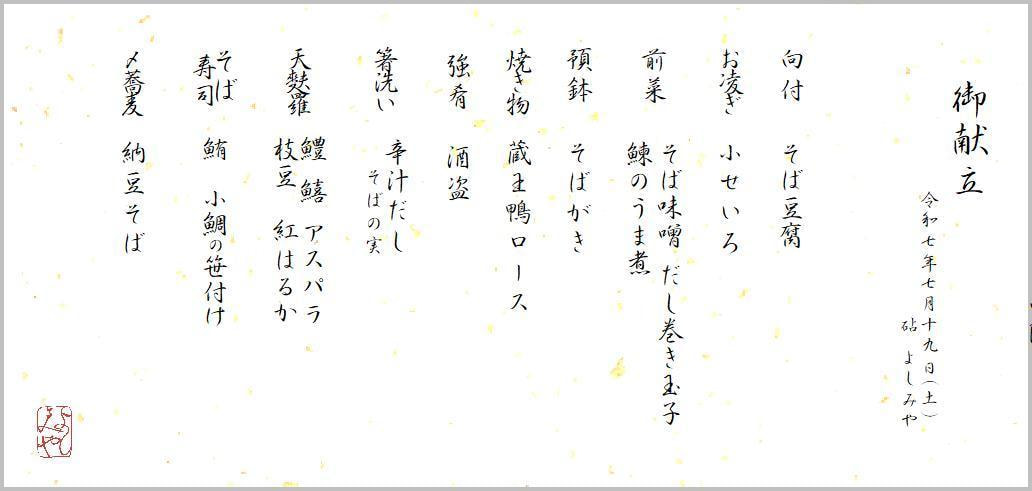 御献立
令和七年七月十九日(土)
砧 よしみや
向付 そば豆腐
お凌ぎ 小せいろ
前菜 そば味噌 だし巻き玉子
鰊のうま煮
預鉢 そばがき
焼き物 蔵王鴨ロース
強肴 酒盗
箸洗い 辛汁だし
そばの実
天麩羅 鱧 鱚 アスパラ
枝豆 紅はるか
そば寿司 鮪 小鯛の笹付け
〆蕎麦 納豆そば
よしみや